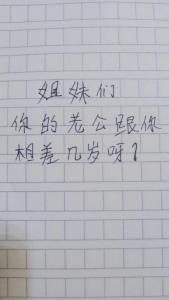 姐妹们
你的老公跟你
相差几岁呀？